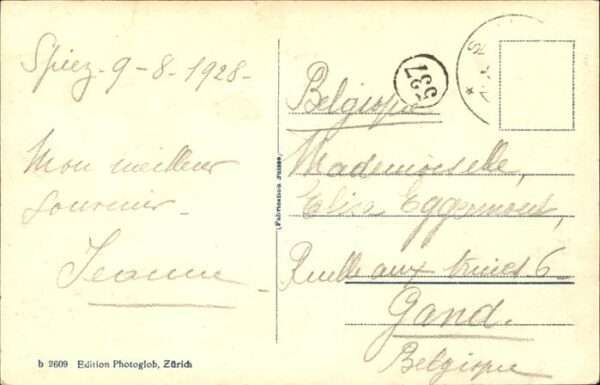 Spiez 9-8-1928-
Mon meilleur
souvenir-
Jeanne-
537
Belgique
Mademoiselle,
Elisa Eggermont,
Ruelle aux 6
Gand.
Belgique
(Fabrication suisse.)
b 2609 Edition Photoglob, Zürich